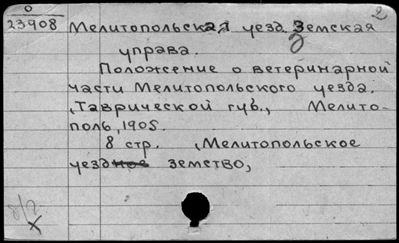 2
0
23908
Мелитопольская уезд. Земская
управа.
Положение о ветеринарной
части Мелитопольского уезда.
,Таврической губ., Мелито-
поль, 1905.
8 стр. ,Мелитопольское
уездное земство,